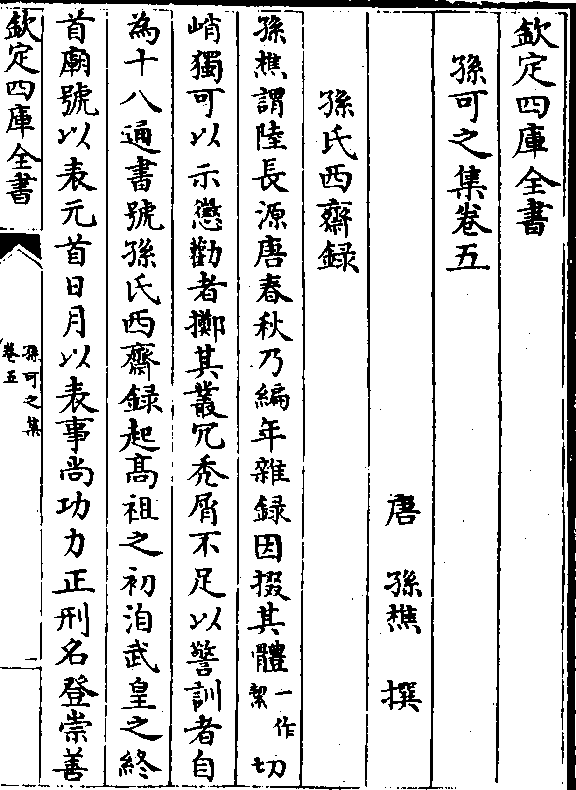 欽定四庫全書
孫可之集卷五
唐 孫樵 撰
孫氏西齋録
孫樵謂陸長源唐春秋乃編年雜録因掇其體一作絜切
峭獨可以示懲勸者擲其叢冗秃屑不足以警訓者自
為十八通書號孫氏西齋録起髙祖之初洎武皇之終
首廟號以表元首日月以表事尚功力正刑名登崇善
欽定四庫全書
孫可之集
卷五
一